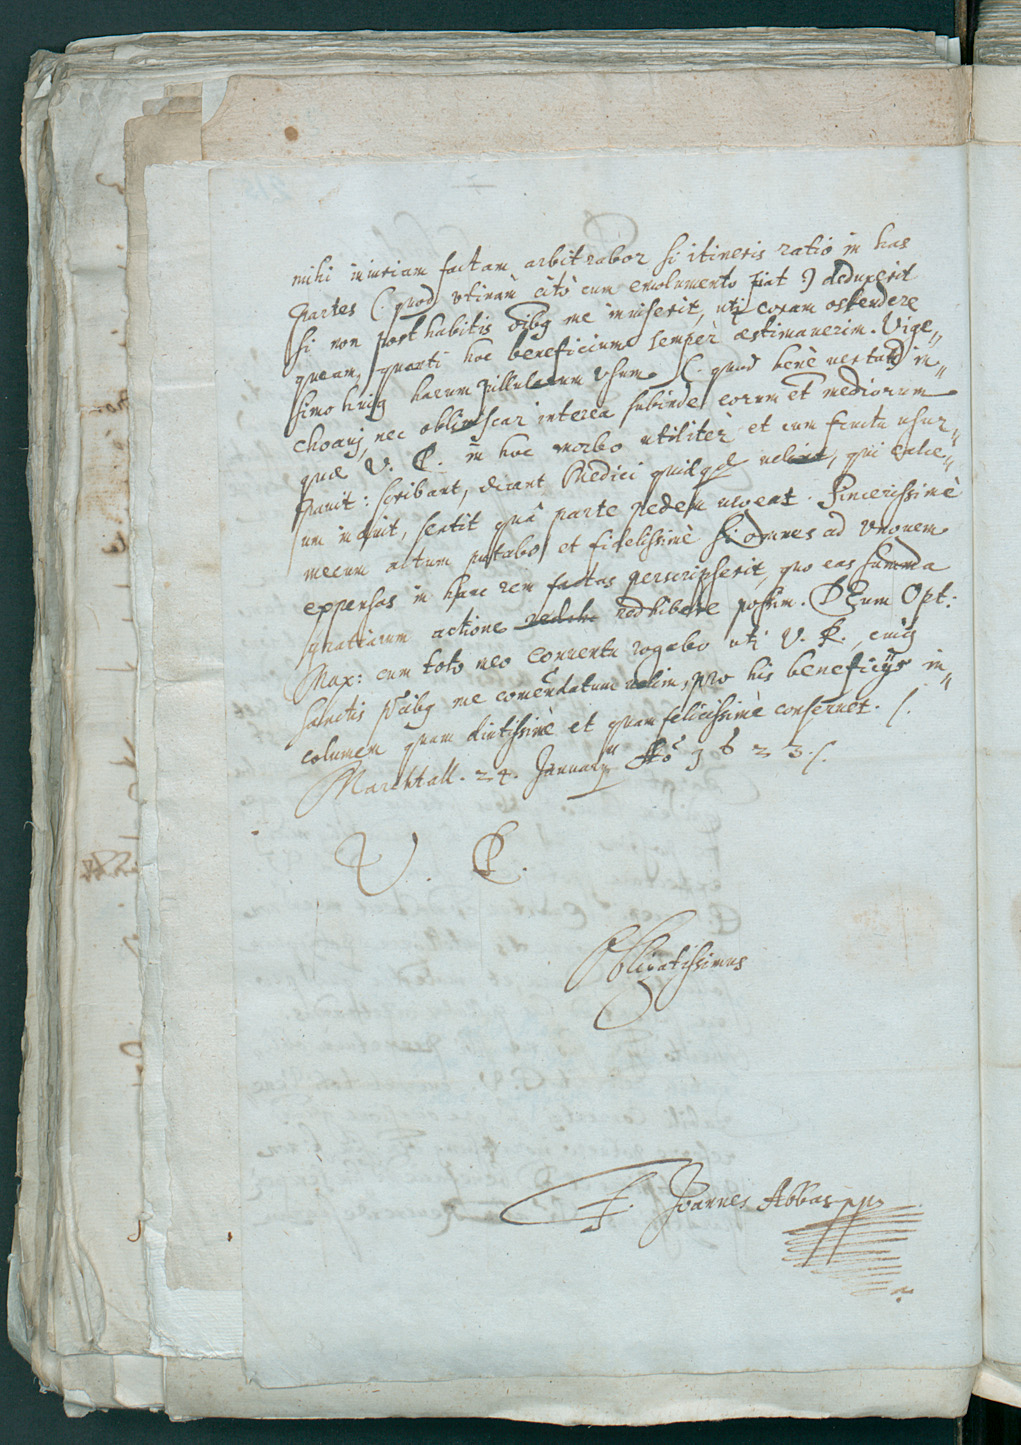 mihi iniuriam factam arbitrabor si itineris ratio in has
partes (: quod vtinam citò cum emolumento fiat :) deduxerit
si non posthabitis oîbus me inuiserit, uti coram ostendere
queam, quanti hoc beneficium semper æstimauerim. Vige„
simo huius harum pillularum vsum (: quod benè uertat :) in„
choaui, nec obliuiscar interea subinde eorum et mediorum
quæ V. P. in hoc morbo utilitèr et cum fructu usur„
pauit: scribant, dicant Medici quidquid uelint, qui calce„
um induit, sentit quâ parte pedem urgeat. Sincerissimè
mecum actum putabo, et fidelissimè si omnes ad vnonem
expensas in hanc rem factas perscripserit, quo eas summa
gratiarum actione redhibere possim. DEum Opt:
Max: cum toto meo Conuentu rogabo uti V. P., cuius
sanctis p̃cibus me comendatum uelim, pro his beneficijs in„
columem quam diutissimè et quam felicissimè conseruet. /.
Marchtall. 24. Januarij Aõ 1623 /.
V. P.
Obligatissimus
F. Joannes Abbas pp